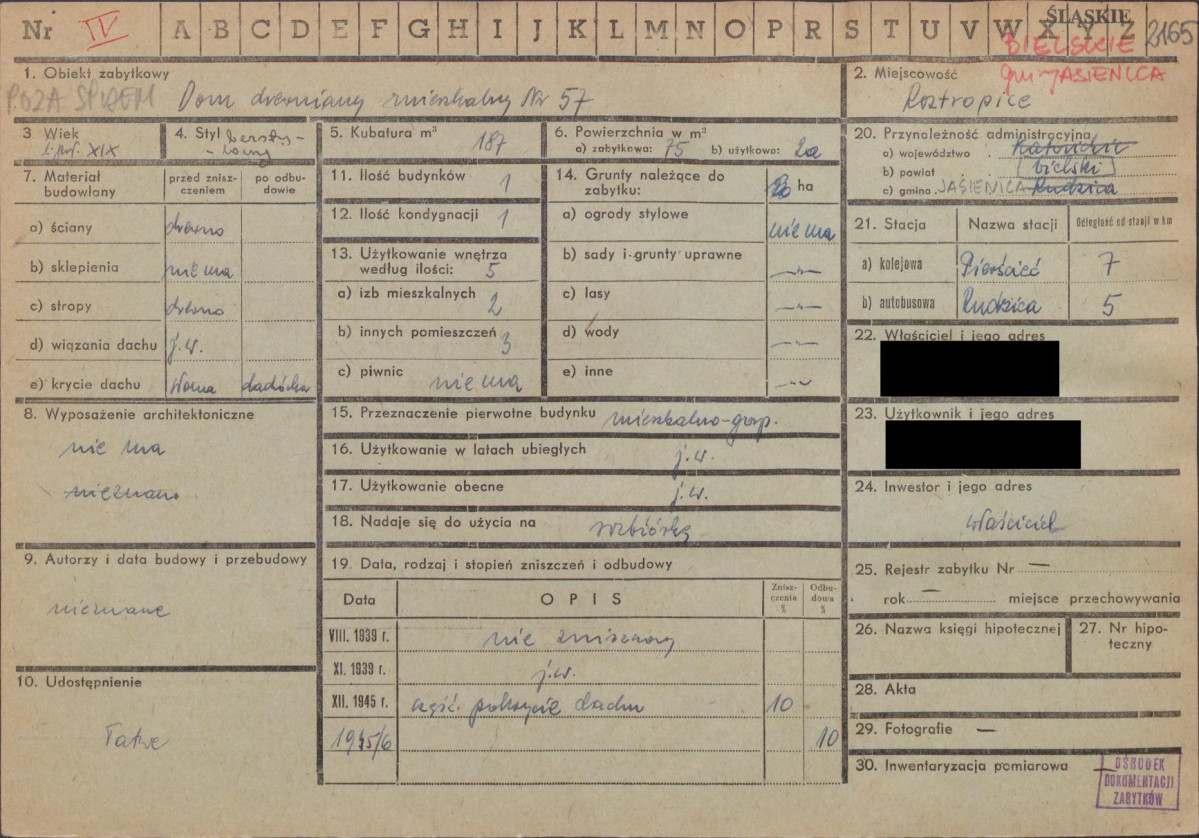 Nr IV A B C D E F G H I J K L M N O P R S T U V W X Y Z ŚLĄSKIE 2165
BIELSKIE
gm. JASIENICA
1. Obiekt zabytkowy
POZA SPISEM Dom drewniany mieszkalny Nr 57
2. Miejscowość
Roztropice
3 Wiek
I. poł. XIX
4. Styl bezsty-
-lowy
5. Kubatura m³
187
6. Powierzchnia w m²
a) zabytkowa: 75 b) użytkowa:
7. Materiał budowlany
przed znisz-
czeniem
po odbu-
dowie
a) ściany drewno
b) sklepienia nie ma
c) stropy drewno
d) wiązania dachu j.w.
e) krycie dachu słoma dachówka
8. Wyposażenie architektoniczne
nie ma
nieznane
9. Autorzy i data budowy i przebudowy
nieznane
10. Udostępnienie
Łatwe
11. Ilość budynków 1
12. Ilość kondygnacji 1
13. Użytkowanie wnętrza
według ilości: 5
a) izb mieszkalnych 2
b) innych pomieszczeń 3
c) piwnic nie ma
14. Grunty należące do
zabytku: ha
a) ogrody stylowe nie ma
b) sady i grunty uprawne -„-
c) lasy -„-
d) wody -„-
e) inne -„-
15. Przeznaczenie pierwotne budynku mieszkalno-gosp.
16. Użytkowanie w latach ubiegłych j.w.
17. Użytkowanie obecne j.w.
18. Nadaje się do użycia na rozbiórkę
19. Data, rodzaj i stopień zniszczeń i odbudowy
Data OPIS Znisz-
czenia
% Odbu-
dowa
%
VIII. 1939 r. nie zniszczony
XI. 1939 r. j.w.
XII. 1945 r. część. pokrycie dachu 10
1945/6 10
20. Przynależność administracyjna
a) województwo Katowickie
b) powiat bielski
c) gmina JASIENICA Rudzica
21. Stacja Nazwa stacji Odległość od stacji w km
a) kolejowa Pierściec 7
b) autobusowa Rudzica 5
22. Właściciel i jego adres
23. Użytkownik i jego adres
24. Inwestor i jego adres
właściciel
25. Rejestr zabytku Nr —
rok — miejsce przechowywania
26. Nazwa księgi hipotecznej
27. Nr hipo-
teczny
28. Akta
29. Fotografie —
30. Inwentaryzacja pomiarowa —
OŚRODEK
DOKUMENTACJI
ZABYTKÓW